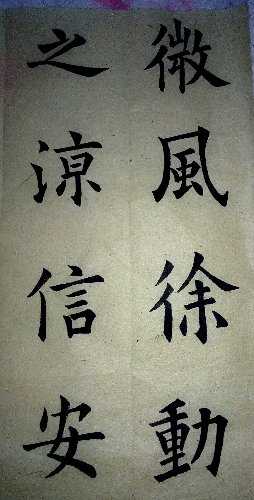 微風徐動
之涼信安